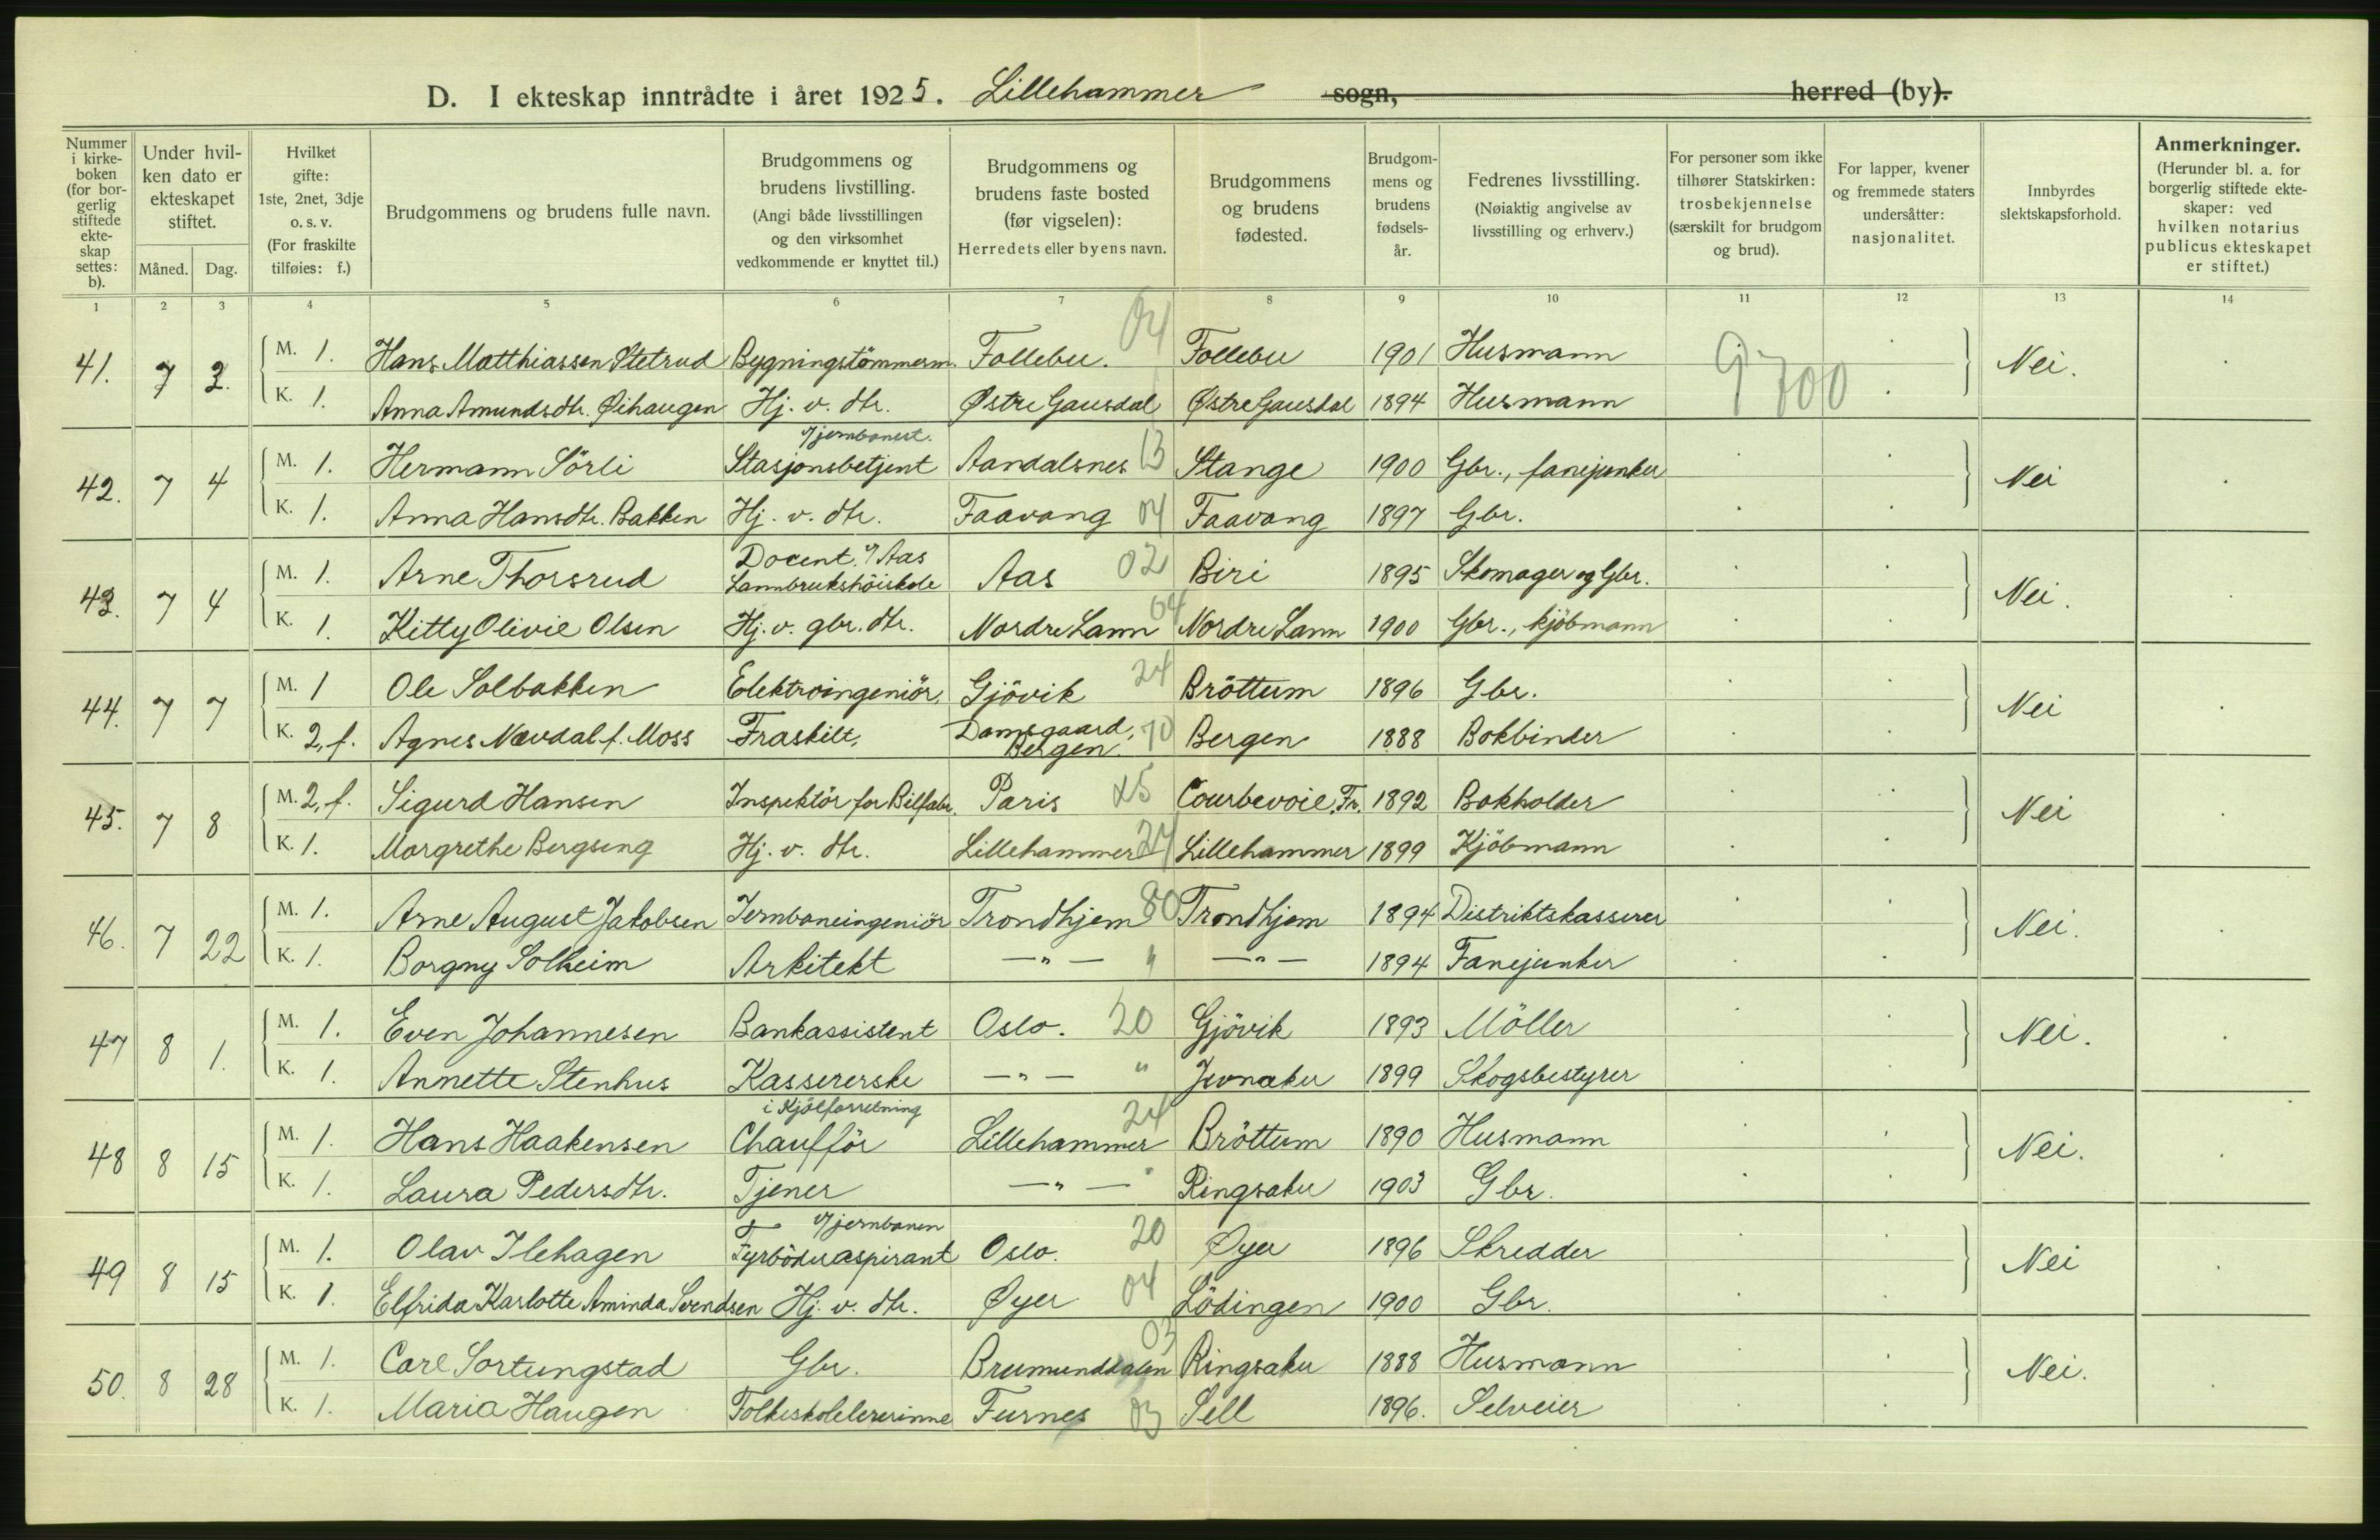 D. I ekteskap inntrådte i året 1925. Lillehammer sogn, herred (by).
Nummer i kirkeboken (for borgerlig stiftede ekteskap settes: b).
Under hvilken dato er ekteskapet stiftet.
Måned. Dag.
Hvilket gifte: 1ste, 2net, 3dje o. s. v. (For fraskilte tilføies: f.)
Brudgommens og brudens fulle navn.
Brudgommens og brudens livstilling. (Angi både livsstillingen og den virksomhet vedkommende er knyttet til.)
Brudgommens og brudens faste bosted (før vigselen): Herredets eller byens navn.
Brudgommens og brudens fødested.
Brudgommens og brudens fødselsår.
Fedrenes livsstilling. (Nøiaktig angivelse av livsstilling og erhverv.)
For personer som ikke tilhører Statskirken: trosbekjennelse (særskilt for brudgom og brud).
For lapper, kvener og fremmede staters undersåtter: nasjonalitet.
Innbyrdes slektskapsforhold.
Anmerkninger. (Herunder bl. a. for borgerlig stiftede ekteskaper: ved hvilken notarius publicus ekteskapet er stiftet.)
1 2 3 4 5 6 7 8 9 10 11 12 13 14
41. 7 3. M. 1. Hans Matthiassen Stetrud Bygningstömmerm. Follebu. 04 Follebu 1901 Husmann Nei.
K. 1. Anna Amundsdtr. Øihaugen Hj. v. dtr. Østre Gausdal Østre Gausdal 1894 Husmann
9700
42. 7 4 M. 1. Hermann Sörli Stasjonsbetjent v/jernbanest. Aandalsnes 13 Stange 1900 Gbr., fanejunker Nei
K. 1. Anna Hansdtr. Bakken Hj. v. dtr. Faavang 04 Faavang 1897 Gbr.
43. 7 4 M. 1. Arne Thorsrud Docent v/ Aas Lannbrukshöiskole Aas 02 Biri 1895 Skomager og Gbr. Nei.
K. 1. Kitty Olivie Olsen Hj. v. gbr. dtr. Nordre Lann 04 Nordre Lann 1900 Gbr., kjöbmann
44. 7 7 M. 1 Ole Solbakken Elektroingeniör, Gjövik 24 Bröttum 1896 Gbr. Nei
K. 2, f. Agnes Nævdal f. Moss Fraskilt, Damsgaard, Bergen. 70 Bergen 1888 Bokbinder
45. 7 8 M. 2, f. Sigurd Hansen Inspektör for Bilfabr. Paris x5 Courbevoie, Fr. 1892 Bokholder Nei
K. 1. Margrethe Bergseng Hj. v. dtr. Lillehammer 24 Lillehammer 1899 Kjöbmann
46. 7 22 M. 1. Arne August Jakobsen Jernbaneingeniör Trondhjem 80 Trondhjem 1894 Distriktskasserer Nei.
K. 1. Borgny Solheim Arkitekt —"— " —"— 1894 Fanejunker
47 8 1. M. 1. Even Johannesen Bankassistent Oslo. 20 Gjövik 1893 Möller Nei.
K. 1. Annette Stenhus Kassererske —"— " Jevnaker 1899 Skogsbestyrer
i Kjölforretning
48 8 15 M. 1. Hans Haakensen Chaufför Lillehammer 24 Bröttum 1890 Husmann Nei.
K. 1. Laura Pedersdtr. Tjener —"— " Ringsaker 1903 Gbr.
49 8 15 M. 1. Olav Ilehagen Fyrböderaspirant v/jernbanen Oslo. 20 Øyer 1896 Skredder Nei
K. 1. Elfrida Karlotte Aminda Svendsen Hj. v. dtr. Øyer 04 Lödingen 1900 Gbr.
50. 8 28 M. 1. Carl Sortungstad Gbr. Brumunddalen 03 Ringsaker 1888 Husmann Nei.
K. 1. Maria Haugen Folkeskolelererinne Furnes 03 Sell 1896. Selveier